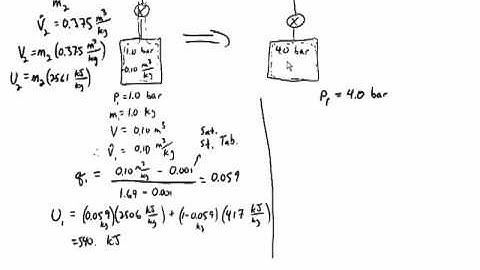 m₂
V̂₂ = 0.375 m³/kg
V₂ = m₂(0.375 m³/kg)
U₂ = m₂(2561 kJ/kg)
1.0 bar
0.10 m³/kg
4.0 bar
P₁ = 1.0 bar
m₁ = 1.0 kg
V = 0.10 m³
∴ V̂₁ = 0.10 m³/kg
Sat. St. Tab.
q₁ = (0.10 m³/kg - 0.001)/(1.69 - 0.001) = 0.059
U₁ = (0.059)kg(2506 kJ/kg) + (1-0.059)kg(417 kJ/kg)
= 540. kJ
P_f = 4.0 bar